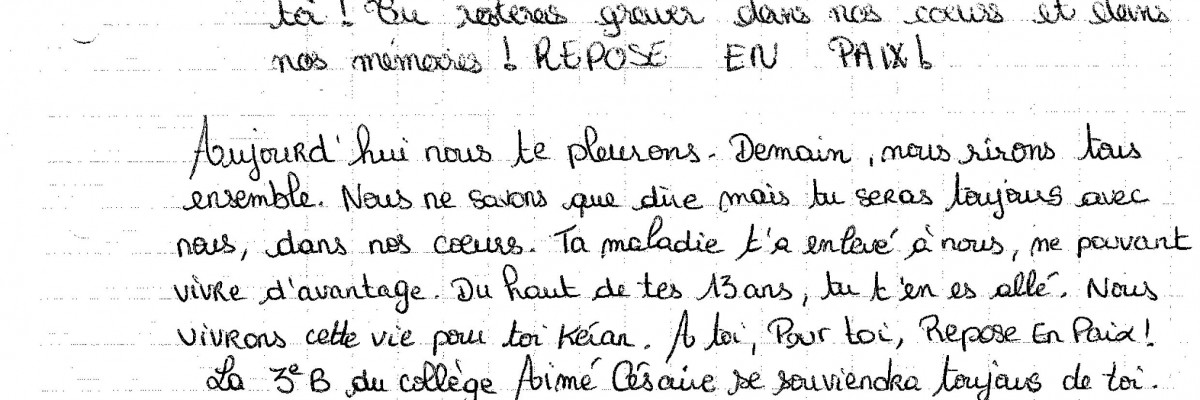 toi ! Tu resteras graver dans nos cœurs et dans
nos mémoires ! REPOSE EN PAIX !
Aujourd'hui nous te pleurons. Demain, nous rirons tous
ensemble. Nous ne savons que dire mais tu seras toujours avec
nous, dans nos cœurs. Ta maladie t'a enlevé à nous, ne pouvant
vivre d'avantage. Du haut de tes 13 ans, tu t'en es allé. Nous
vivrons cette vie pour toi Kéian. A toi, Pour toi, Repose En Paix !
La 3e B du collège Aimé Césaire se souviendra toujours de toi.